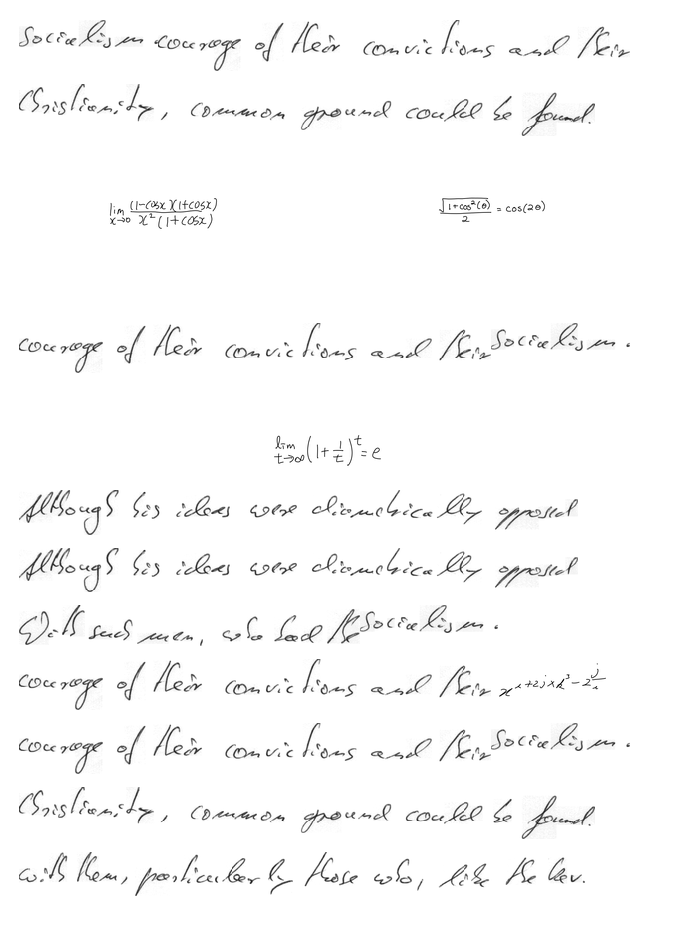 Socialism courage of their convictions and their
Christianity, common ground could be found.
\lim_{x \to 0} \frac{(1-\cos x)(1+\cos x)}{x^2(1+\cos x)} \frac{\sqrt{1+\cos^2(\theta)}}{2} = \cos(2\theta)
courage of their convictions and their Socialism.
\lim_{t \to \infty} \left(1+\frac{1}{t}\right)^t = e
Although his ideas were diametrically opposed
Although his ideas were diametrically opposed
With such men, who had the Socialism.
courage of their convictions and their
courage of their convictions and their Socialism.
Christianity, common ground could be found.
with them, particularly those who, like the Rev.